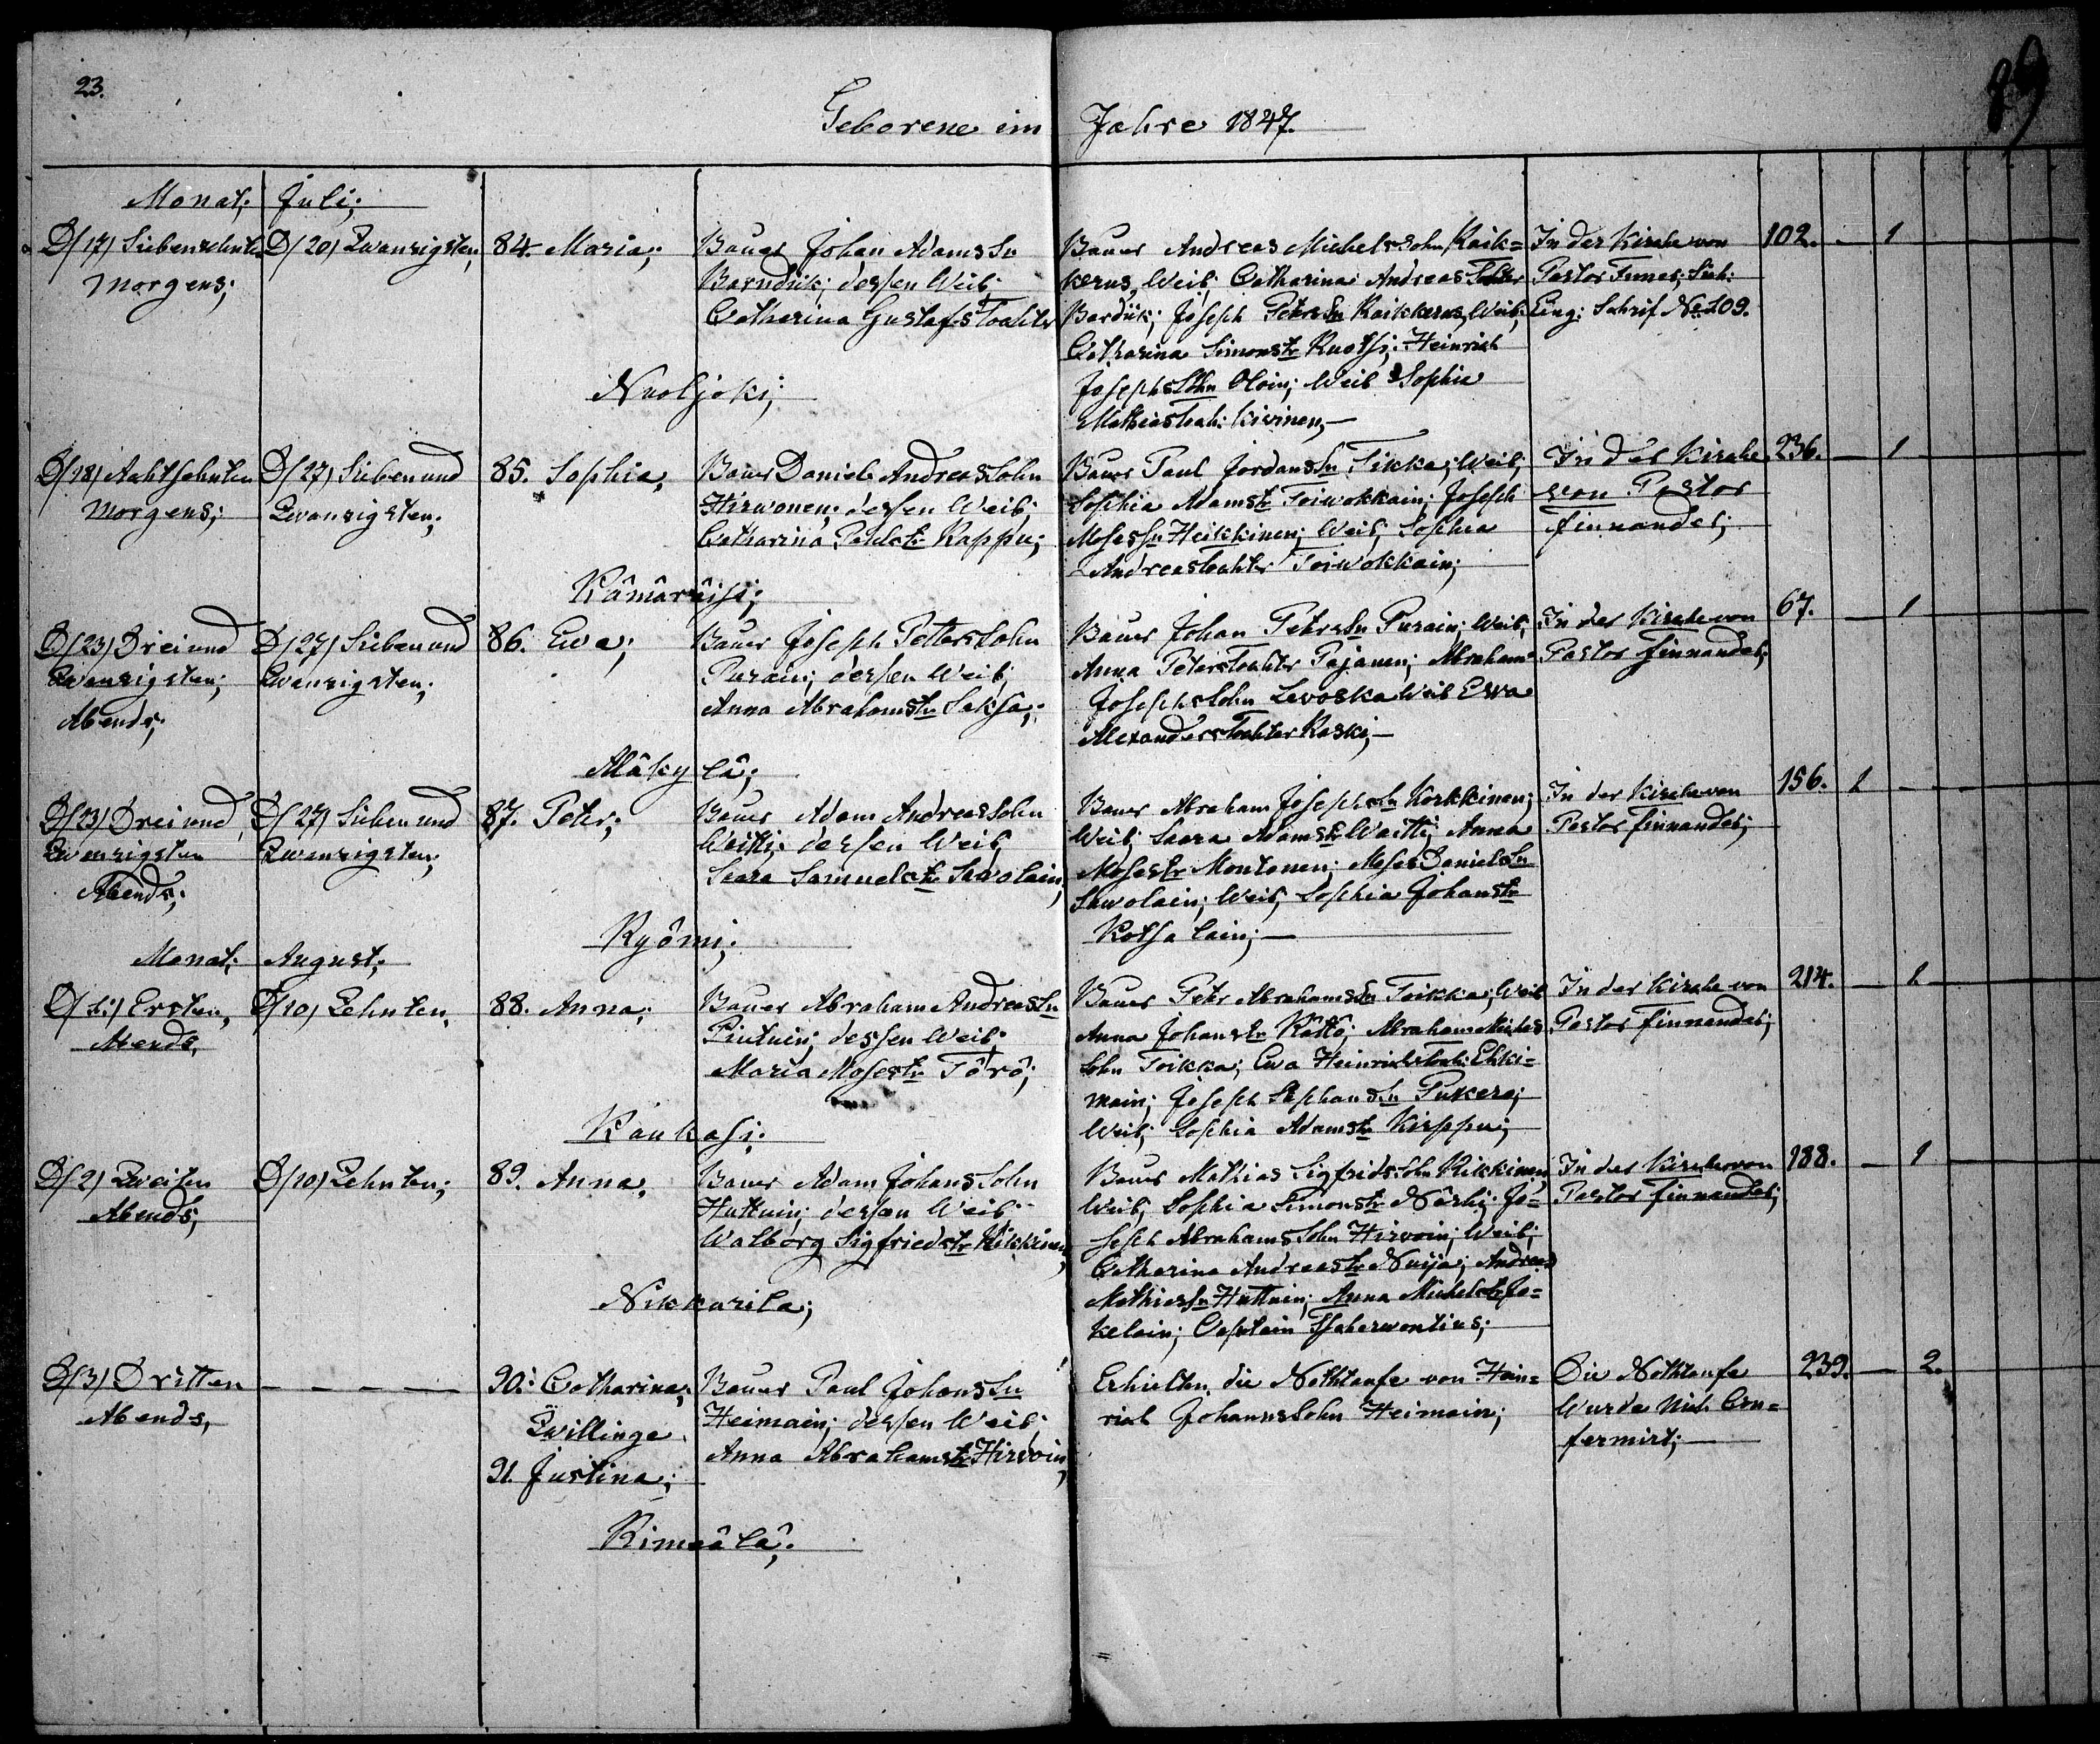 23.
89
Geborene im Jahre 1847.
Monat; Juli;
D/17) Siebenzehnten D/20) Zwanzigsten, 84. Maria;
Morgens;
Bauer Johan Adams Sn
Barndük; dessen Weib;
Catharina Gustafs Tochter
Bauer Andreas Michelssohn Kaik=
kerus, Weib; Catharina Andreas Tochter
Bardük; Joseph Petrs Sn Kaikkerus, Weib;
Catharina Simonstr Ruotsi; Heinrich
Josephs Sohn Oloin; Weib Sophia
Mathiastoch: Kirinen,
In der Kirche von
Pastor
Eing: Schrif No 109.
102. — 1
Nuoljoki;
D/18) Achtzehnten D/27) Sieben und 85. Sophia,
Morgens; Zwanzigsten;
Bauer Daniel Andreas Sohn
Hirwonen; dessen Weib;
Catharina Paulstr Kappu;
Bauer Paul Jordans Sn Tikka; Weib,
Sophia Adamstr Toiwokkain; Joseph
Moses Sn Heikkinen; Weib, Sophia
Andreastochter Toiwokkain;
In der Kirche
von Pastor
Finnander;
236. — 1
Kämäräisi;
D/23) Drei und D/27) Sieben und 86. Ewa;
Zwanzigsten; Zwanzigsten;
Abends;
Bauer Joseph Petters Sohn
Purain; dessen Weib;
Anna Abrahamstr Saksa;
Bauer Johan Petrs Sn Purain; Weib,
Anna Peters Tochter Pajanen; Abraham
Josephs Sohn Levoska Weib Ewa
Alexanders Tochter Kaski;—
In der Kirche von
Pastor Finnander;
67. — 1
Aläkylä;
D/23) Drei und D/27) Sieben und 87. Peter;
Zwenzigsten Zwenzigsten;
Abends;
Bauer Adam Andreas Sohn
Weitti; dessen Weib,
Saara Samuelstr Sawolain,
Bauer Abraham Josephs Sn Korkkinen;
Weib; Saara Adamstr Waitti; Anna
Mosestr Montonen; Moses Daniels Sn
Sawolain; Weib, Sophia Johanstr
Kotsalain;—
In der Kirche von
Pastor Finnander;
156. 1
Kyömi;
Monat; August;
D/1:) Ersten, D/10) Zehnten, 88. Anna;
Abends,
Bauer Abraham Andreas Sn
dessen Weib;
Maria Mosestr Törö;
Bauer Petr Abrahams Sn Toikka; Weib
Anna Johanstr Kättö; Abraham Michels
Sohn Toikka; Ewa Heinrichstoch: Ehki=
main; Joseph Stephans Sn Pukero;
Weib; Sophia Adamstr Kirppu;
In der Kirche von
Pastor Finnander;
214. — 1
Kaukasi;
D/2) Zweiten D/10) Zehnten; 89. Anna,
Abends,
Bauer Adam Johans Sohn
Huttuin; dessen Weib
Walborg Sigfriedstr Kikkinen,
Bauer Mathias Sigfrids Sohn Kikkinen,
Weib, Sophia Simonstr Närhi; Jo=
seph Abrahams Sohn Hirvoin; Weib;
Catharina Andreastr Nuija; Andreas
Mathias Sn Huttuin; Anna Michelstr Jo=
kelain; Captain
In der Kirche von
Pastor Finnander;
188. — 1
Nikkarila;
D/3) Dritten — — — — 90. Catharina;
Abends,
Zwillinge
91. Justina;
Bauer Paul Johans Sn
Heimain; dessen Weib;
Anna Abrahamstr Hirvoin,
Erhielten die Nothtaufe von Hein=
rich Johanns Sohn Heimain;
Die Nothtaufe
wurde nich Con=
fermirt;
239. — 2.
Rimeälä;